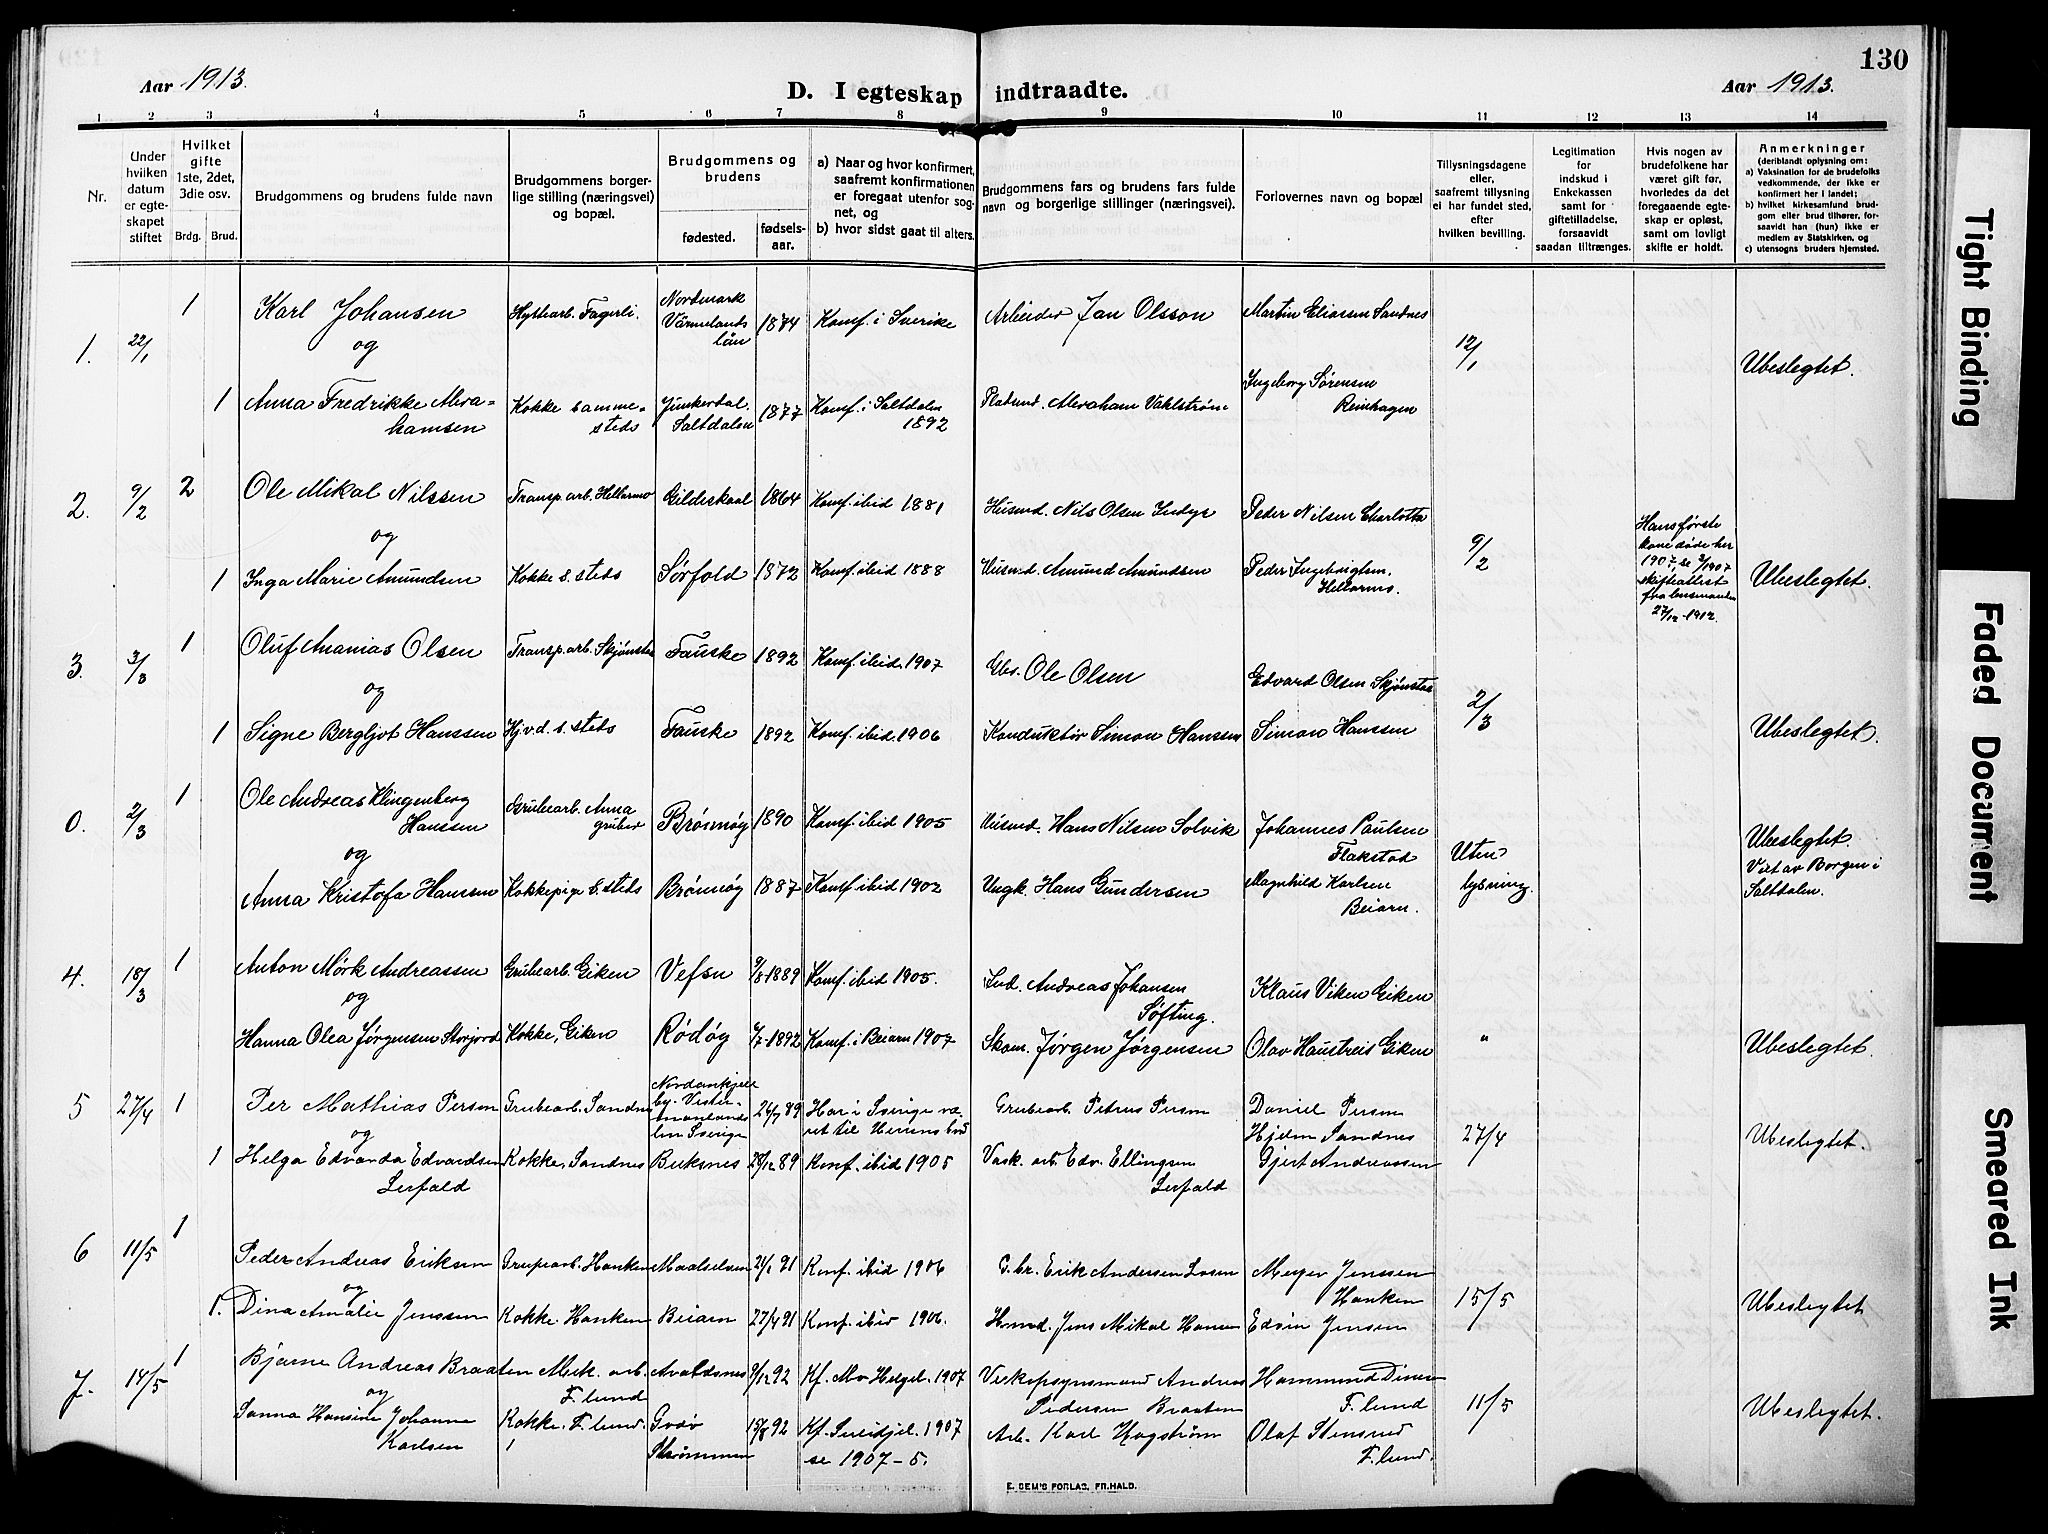 130
Aar 1913.
D. I egteskap indtraadte.
Aar 1913.
1 2 3 4 5 6 7 8 9 10 11 12 13 14
Nr.
Under hvilken datum er egteskapet stiftet
Hvilket gifte 1ste, 2det, 3die osv.
Brdg. Brud.
Brudgommens og brudens fulde navn
Brudgommens borgerlige stilling (næringsvei) og bopæl.
Brudgommens og brudens
fødested.
fødselsaar.
a) Naar og hvor konfirmert, saafremt konfirmationen er foregaat utenfor sognet, og
b) hvor sidst gaat til alters.
Brudgommens fars og brudens fars fulde navn og borgerlige stillinger (næringsvei).
Forlovernes navn og bopæl
Tillysningsdagene eller, saafremt tillysning ei har fundet sted, efter hvilken bevilling.
Legitimation for indskud i Enkekassen samt for giftetilladelse, forsaavidt saadan tiltrænges.
Hvis nogen av brudefolkene har været gift før, hvorledes da det foregaaende egteskap er opløst, samt om lovligt skifte er holdt.
Anmerkninger
(deriblandt oplysning om:
a) Vaksination for de brudefolks vedkommende, der ikke er konfirmert her i landet;
b) hvilket kirkesamfund brudgom eller brud tilhører, forsaavidt han (hun) ikke er medlem av Statskirken, og
c) utensogns bruders hjemsted.
1. 22/1 1 Karl Johansen Hyttearb. Fagerli. Nordmark Värmelands län 1874 Konf. i Sverike Arbeider Jan Olsson Martin Eliassen Sandnes 12/1 Ubeslegtet.
og
1 Anna Fredrikke Abrahamsen Kokke sammesteds Junkerdal. Saltdalen 1877 Konf. i Saltdalen 1892 Pladsmd. Abraham Vahlstrøm Ingeborg Sørensen Reinhagen
2. 9/2 2 Ole Mikal Nilssen Transp. arb. Hellarmo Gildeskaal 1864 Konf. ibid 1881 Husmd. Nils Olsen Peder Nilsen Charlotta 9/2 Hans første kone døde her 1907, se 3/1907 skifteattest fra lensmanden 27/12-1912. Ubeslegtet.
og
1 Inga Marie Amundsen Kokke s. steds Sørfold 1872 Konf. ibid 1888 Husmd. Amund Amundsen Peder Ingebrigtsen. Hellarmo.
3. 3/3 1 Oluf Ananias Olsen Transp. arb. Skjønstaa Fauske 1892 Konf. ibid. 1907 Gbr. Ole Olsen Edvard Olsen Skjønstaa 2/3 Ubeslegtet.
og
1 Signe Bergljot Hanssen Hj.v.d. s. steds Fauske 1892 Konf. ibid. 1906 Konduktør Simon Hanssen Simon Hanssen
0. 2/3 1 Ole Andreas Klingenberg Hanssen Grubearb. Anna gruber Brønnøy 1890 Konf. ibid 1905 Husmd. Hans Nilsen Solvik Johannes Paulsen Flakstad Uten lysning. Ubeslegtet. Viet av Borgen i Saltdalen.
og
Anna Kristofa Hanssen Kokkepige s. steds Brønnøy 1887 Konf. ibid 1902 Ungk. Hans Gundersen Magnhild Karlsen Beiarn.
4. 18/3 1 Anton Mørk Andreassen Grubearb. Giken Vefsn 9/8-1889 Konf. ibid 1905. Ind. Andreas Johansen Søfting. Klaus Viken Giken " Ubeslegtet.
og
Hanna Olea Jørgensen Storjord Kokke, Giken Rødøy 7/7-1892 Konf. i Beiarn 1907 Skom. Jørgen Jørgensen Olav Haustreis Giken
5 27/4 1 Per Mathias Person Grubearb. Sandnes 26/7 89 Har i Sverige været til Herrens bord Grubearb. Petrus Person Daniel Person Hjelm Sandnes 27/4 Ubeslegtet.
og
1 Helga Edvarda Edvardsen Lerfald Kokke, Sandnes Buksnes 28/12 89 Konf. ibid 1905 Vask. arb. Edv. Ellingsen Lerfald Gjert Andreassen
6 11/5 1 Peder Andreas Eriksen Grubearb. Hanken Maalselven 21/1 91 Konf. ibid 1906 G.br. Erik Andersen Meyer Jenssen Hanken 15/5 Ubeslegtet
og
1. Dina Amalie Jenssen Kokke. Hanken Beiarn 27/4 91 Konf. ibid 1906. Husmd. Jens Mikal Hansen Edvin Jensen
7. 18/5 1 Bjarne Andreas Braaten Mek. arb. F.lund Avaldsnes 9/12 92 Kf. Mo Helgel. 1907 Andreas Pedersen Braaten Hammund F.lund 11/5 Ubeslegtet.
og
Sanna Hansine Johanne Karlsen Kokke. F.lund. Godø Strømmen 15/8 92 Kf. 1907 se 1907-5. Arb. Karl Hagstrøm Olaf Stensrud F.lund.
E. SEM'S FORLAG, FR.HALD.
Tight Binding
Faded Document
Smeared Ink